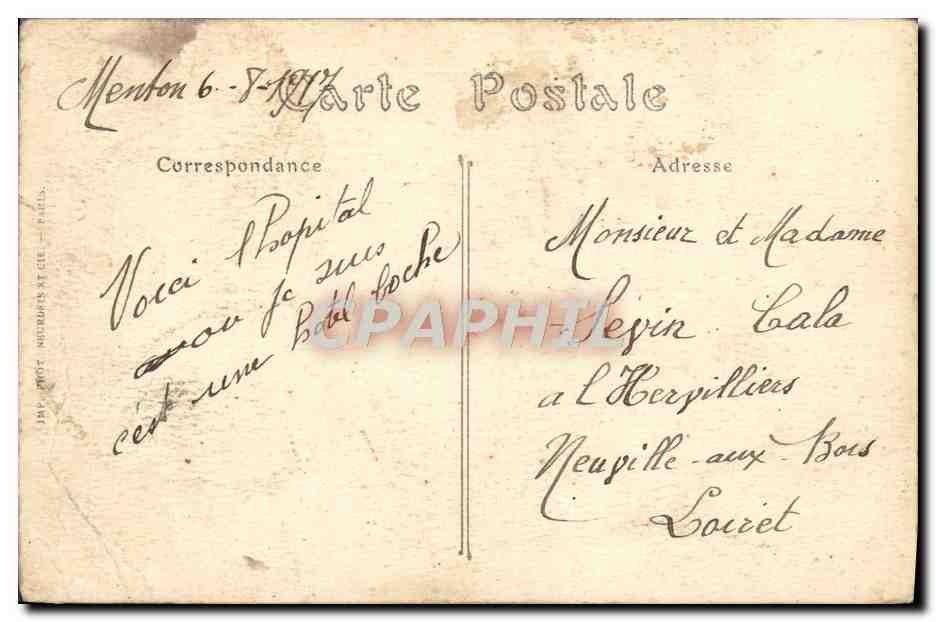 Menton 6-8-1917
Carte Postale
Correspondance
Adresse
Voici l'hopital
ou je suis
c'est une hotel boche
Monsieur et Madame
Sevin Lala
a l'Hervilliers
Neuville-aux-Bois
Loiret
IMP. PHOT. NEURDEIN ET CIE. — PARIS.
CPAPHIL